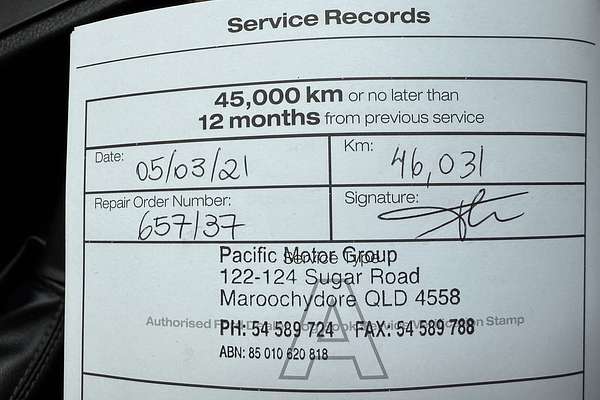 Service Records
45,000 km or no later than
12 months from previous service
Date: 05/03/21
Km: 46,031
Repair Order Number: 657137
Signature:
Service Type:
Pacific Motor Group
122-124 Sugar Road
Maroochydore QLD 4558
Authorised Stamp
PH: 54 589 724 FAX: 54 589 788
ABN: 85 010 620 818
A